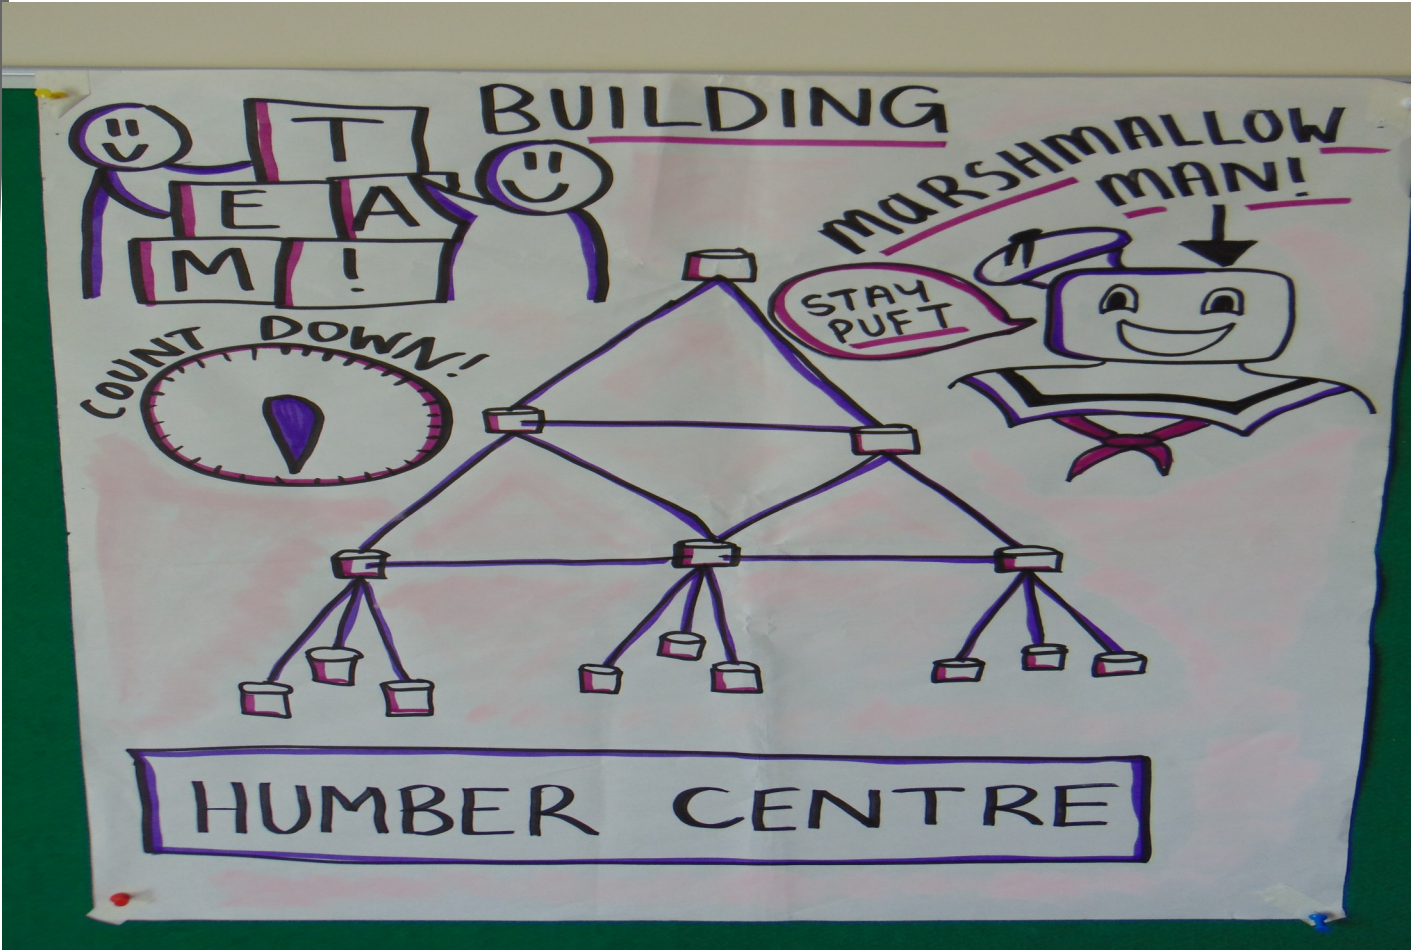 T
E A
M !
BUILDING
MARSHMALLOW
MAN!
STAY
PUFT
COUNT DOWN!
HUMBER CENTRE